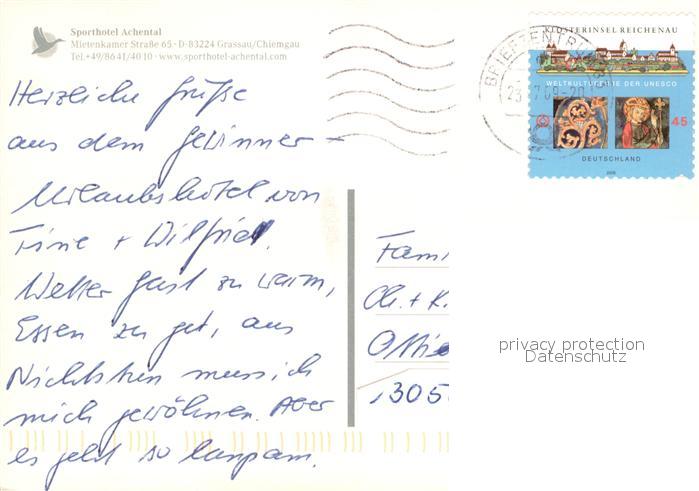 Sporthotel Achental
Mietenkamer Straße 65 · D-83224 Grassau/Chiemgau
Tel. +49/8641/4010 · www.sporthotel-achental.com
KLOSTERINSEL REICHENAU
BRIEFZENTRUM
23.7.09-20
WELTKULTURERBE DER UNESCO
45
DEUTSCHLAND
Herzliche Grüße
aus dem Gewinner-
Urlaubshotel von
Tine + Wilfried.
Wetter fast zu warm,
Essen zu gut, ans
Nichtstun muss ich
mich gewöhnen. Aber
es geht so langsam.
Fami
Ch. + K.
Ottie
1305
privacy protection
Datenschutz